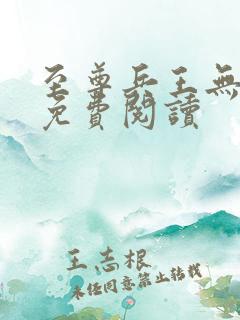 至尊兵王無
免費閱讀
王志根
未经同意禁止转载